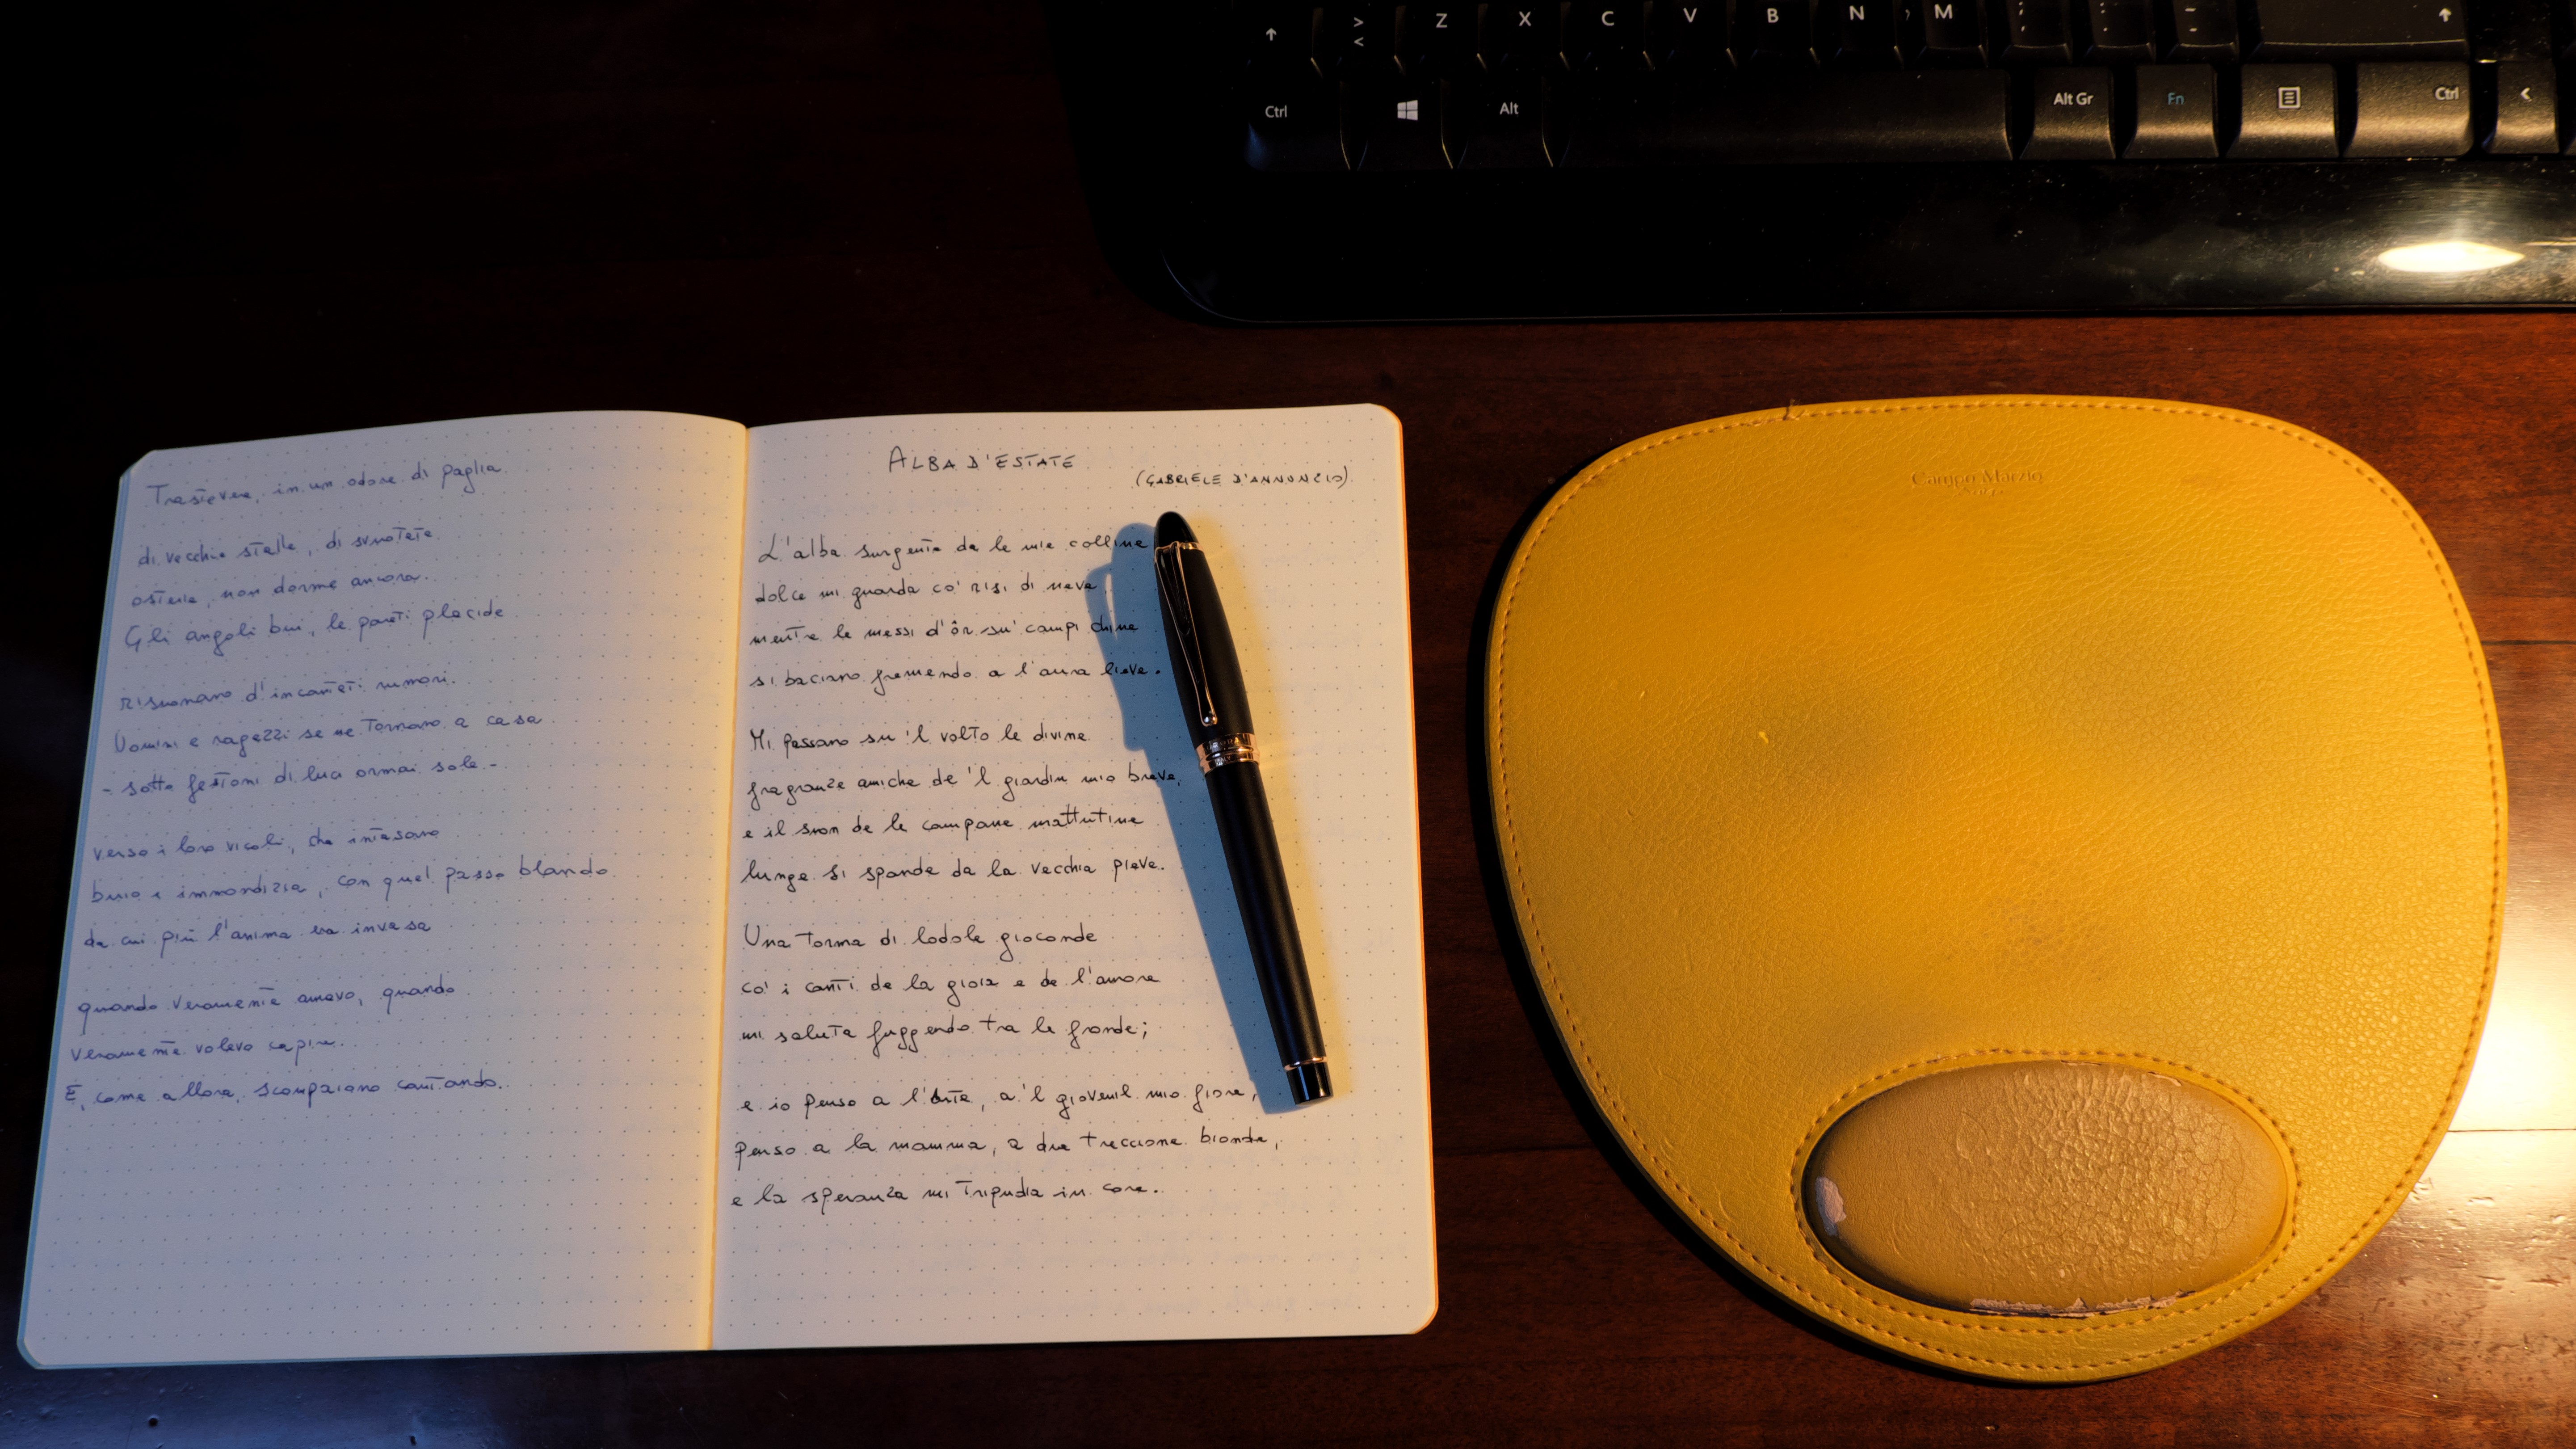 Trastevere, in un odore di paglia
di vecchie stalle, di svuotate
osterie, non dorme ancora.
Gli angoli bui, le pareti placide
risuonano d'incantati rumori.
Uomini e ragazzi se ne tornano a casa
- sotto festoni di luci ormai sole -
verso i loro vicoli, che intasano
buio e immondizia, con quel passo blando
da cui più l'anima era invasa
quando veramente amavo, quando
veramente volevo capire.
E, come allora, scompaiono cantando.
ALBA D'ESTATE
(GABRIELE D'ANNUNZIO)
L'alba surgente da le mie colline
dolce mi guarda co' risi di neve,
mentre le messi d'ôr su' campi chine
si baciano fremendo a l'aura lieve.
Mi passano su 'l volto le divine
fragranze amiche de 'l giardin mio breve,
e il suon de le campane mattutine
lunge si spande da la vecchia pieve.
Una torma di lodole gioconde
co' i canti de la gioia e de l'amore
mi saluta fuggendo tra le fronde;
e io penso a l'Arte, a 'l giovenil mio fiore,
penso a la mamma, a due treccione bionde,
e la speranza mi tripudia in core.
> Z X C V B N M ; : -
<
Ctrl Alt Alt Gr Fn Ctrl <
Campo Marzio